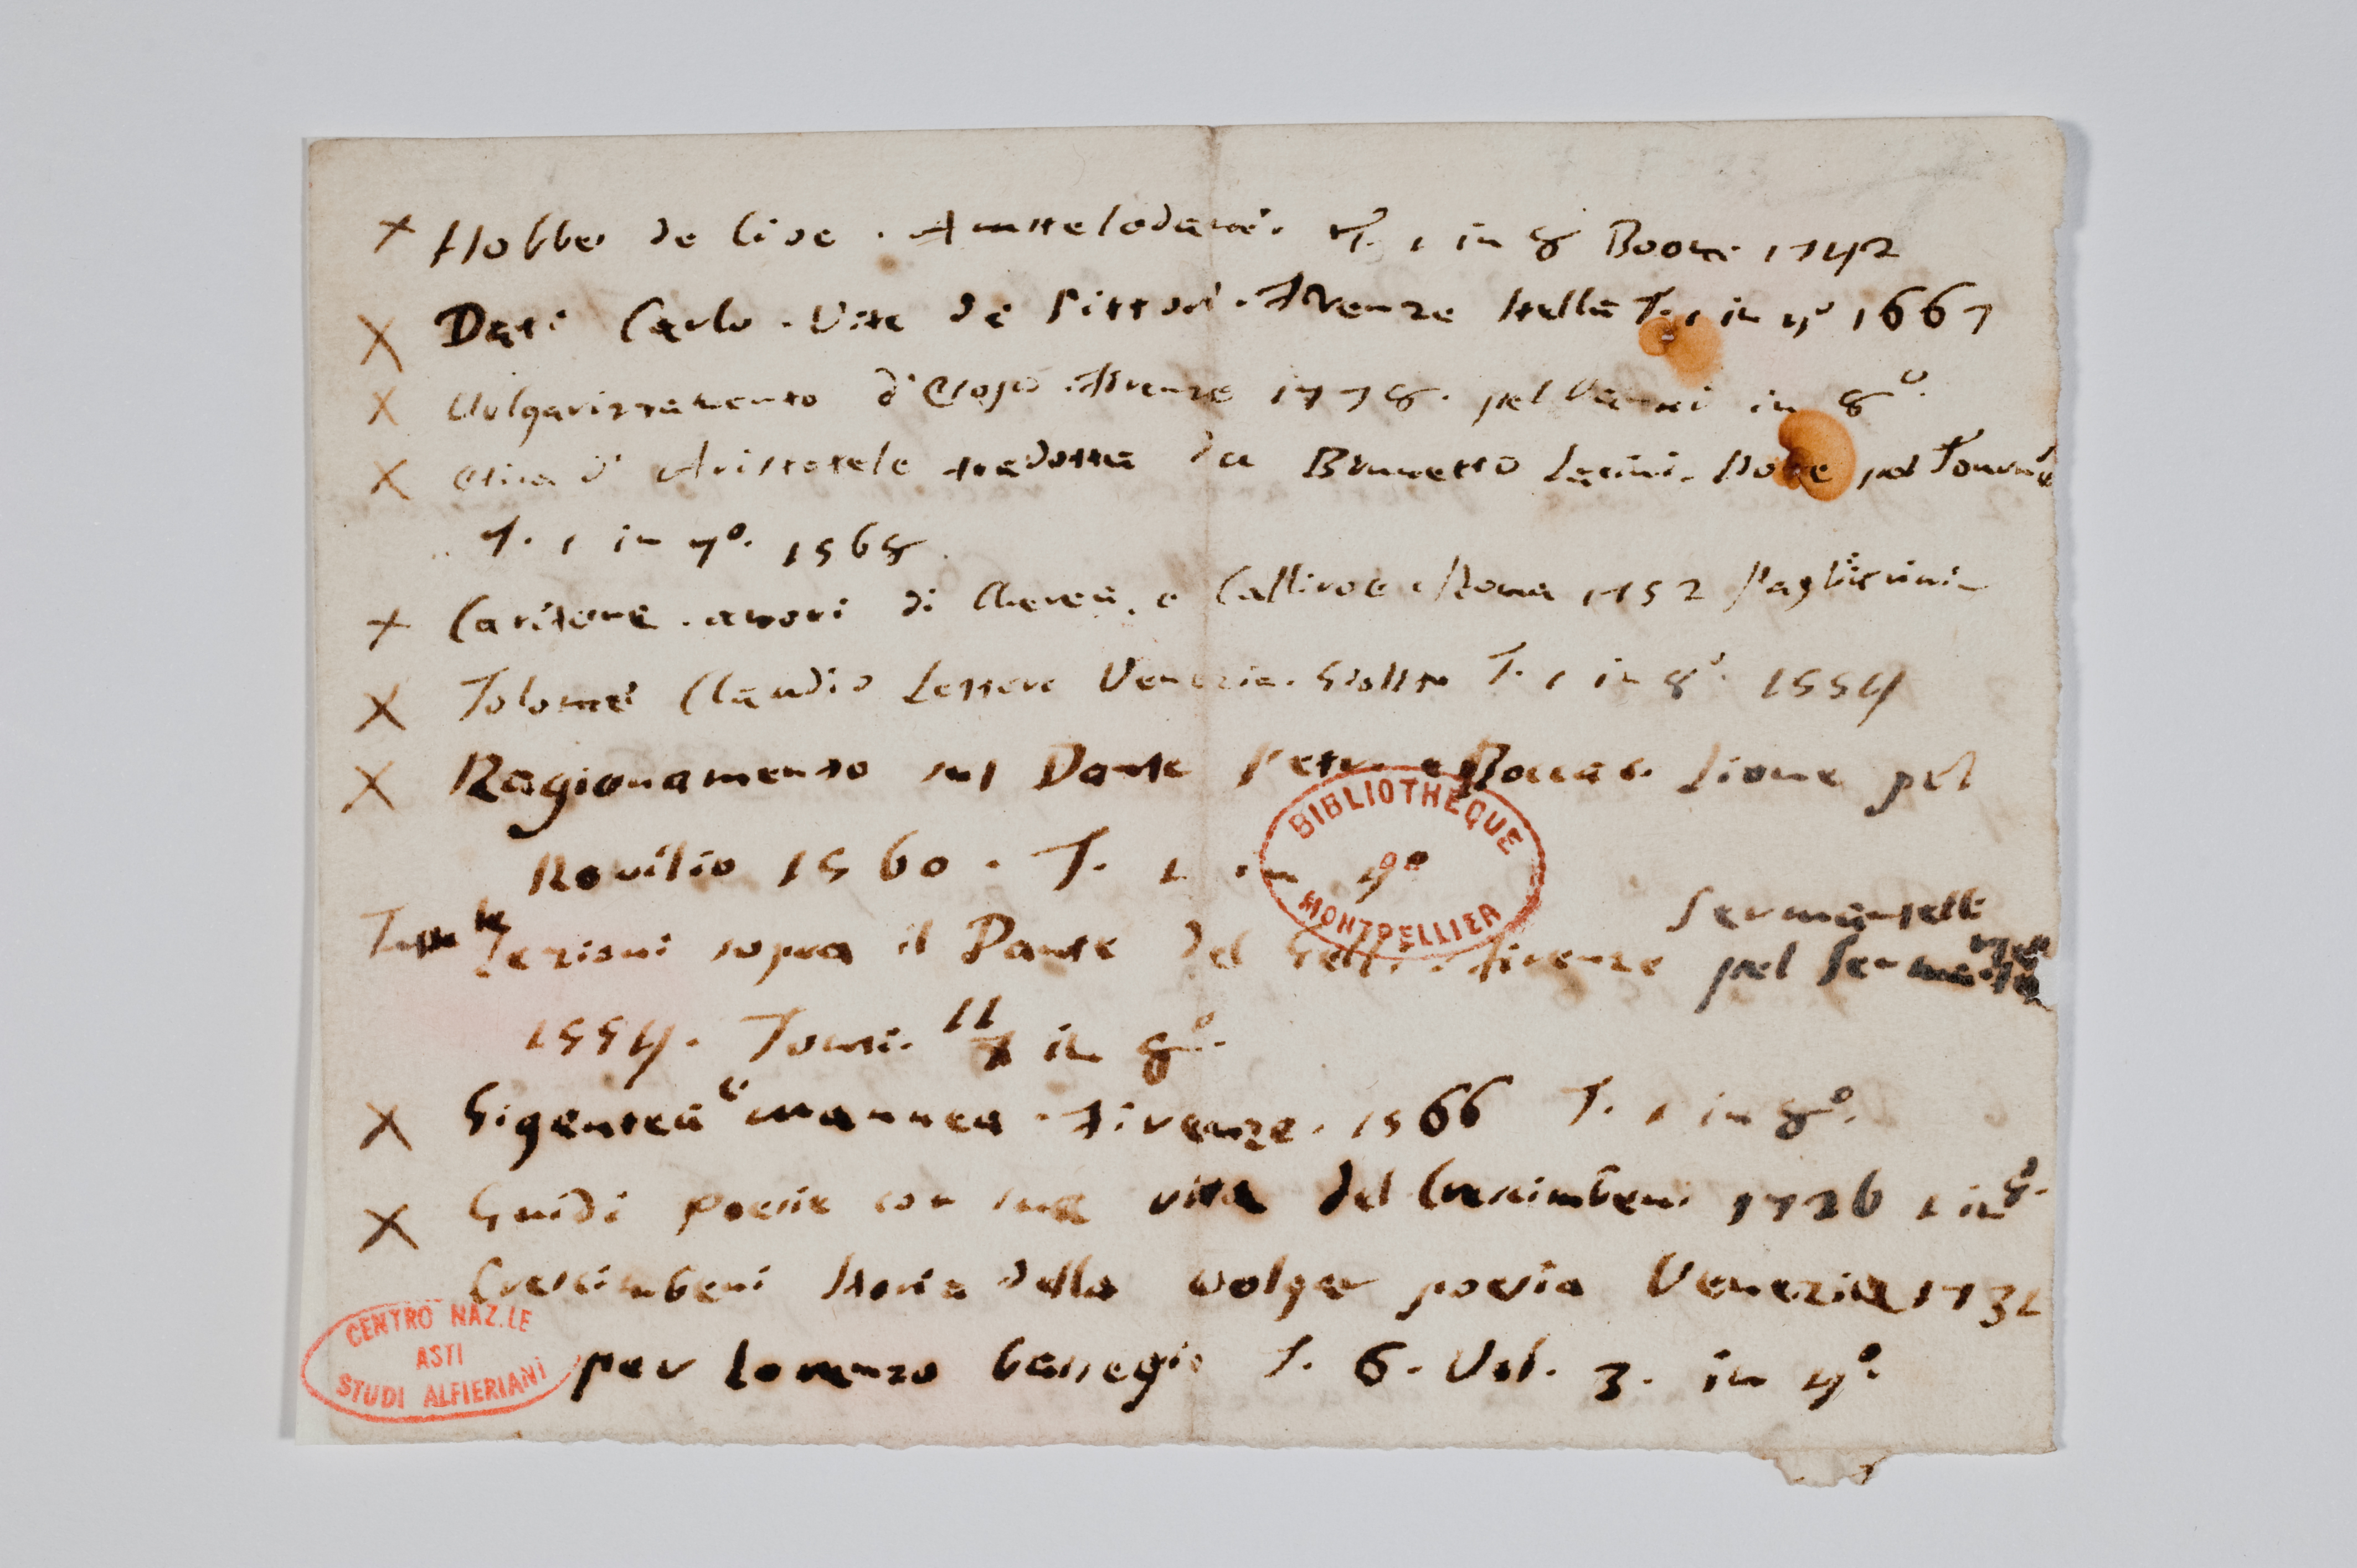 X Hobbes de Cive. Amstelodami. T. 1 in 8 Boom 1742
X Dati Carlo. Vite de Pittori. Firenze Stella T. 1 in 4º 1667
X Volgarizzamento d'Esopo. Firenze 1778. pel Vanni in 8º.
X Etica d'Aristotele tradotta da Brunetto Latini. pel
T. 1 in 4º. 1568.
X Caritone. amori di Cherea, e Calliroe. Roma 1752 Pagliarini
X Tolomei Claudio Lettere Venezia. Giolito T. 1 in 8º. 1554
X Ragionamento sul Dante Petr. e Boccac. Lione pel
Rovilio 1560. T. 1 in 4º
BIBLIOTHEQUE
MONTPELLIER
Sermartelli
Tutte le Lezioni sopra il Dante del Gelli. Firenze pel
1554. Tomi. 11 in 8º.
X Gigantea e Nannea. Firenze. 1566 T. 1 in 8º.
X Guidi Poesie con sua vita del Crescimbeni 1726 1 in 8º.
Crescimbeni Storia della volgar poesia Venezia 1731
per Lorenzo Basegio T. 6. Vol. 3. in 4º.
CENTRO NAZ.LE
ASTI
STUDI ALFIERIANI